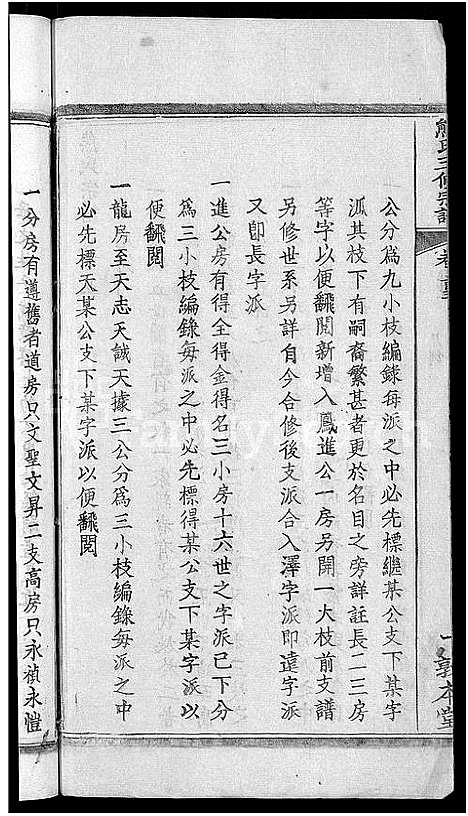 熊氏三修宗譜
公分爲九小枝編錄每派之中必先標繼某公支下某字
派其枝下有嗣裔繁甚者更於名目之旁詳註長二三房
等字以便翻閱新增入鳳進公一房另開一大枝前支譜
另修世系另詳自今合修後支派合入澤字派即遠字派
又卽長字派
一進公房有得全得金得名三小房十六世之字派已下分
爲三小枝編錄每派之中必先標得某公支下某字派以
便翻閱
一龍房至天志天誠天據三公分爲三小枝編錄每派之中
必先標天某公支下某字派以便翻閱
一分房有遵舊者道房只文聖文昇二支高房只永禎永愷